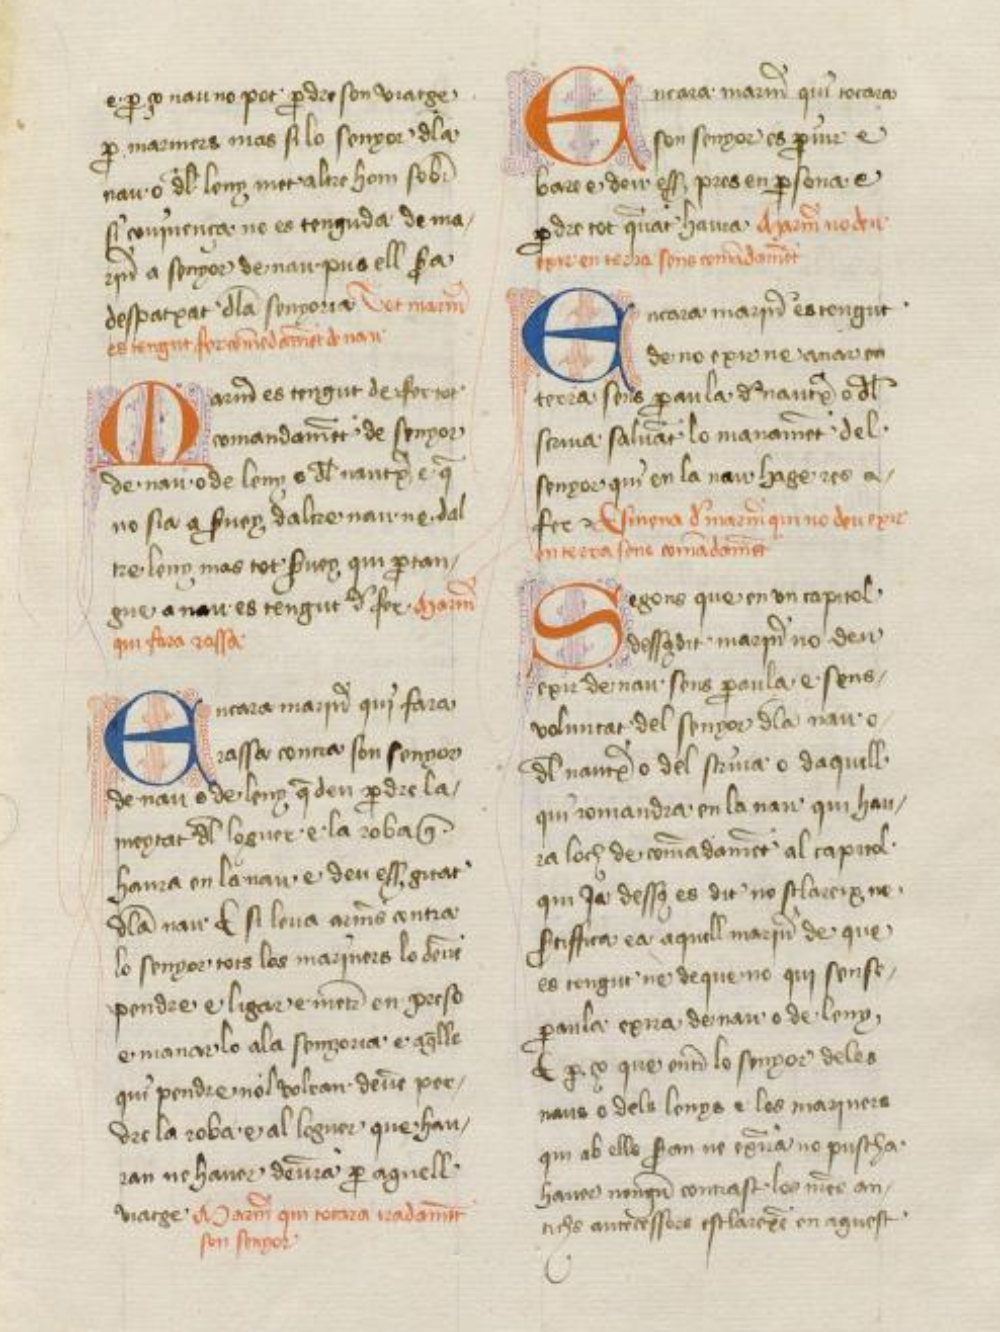 e p ço nau no pot pdre son viatge
p mariners mas si lo senyor dla
nau o dl leny met altre hom sobr
si covinença no es tenguda de ma/
rin a senyor de nau pus ell sra
despatxat dla senyoria Tot marin
es tengut fer comedamet de nau
Marin es tengut de fer tot
comandamet de senyor
de nau o de leny o dl nautx e q
no sia a svey daltre nau ne dal
tre leny mas tot svey qui ptan/
gue a nau es tengut d fer Marin
qui fara rassa
Encara marin qui fara
rassa contra son senyor
de nau o de leny q deu pdre la/
meytat dl loguer e la roba q
haura en la nau e deu esser gitat
dla nau E si leva armes contra
lo senyor tots los mariners lo deue
pendre e ligar e metr en preso
e manarlo a la senyoria e aqlls
qui pendre nol volran deue per/
dre la roba e al loguer que hau/
ran ne hauer deura p aquell
viatge Marin qui tocara iradamet
son senyor
Encara marin qui tocara
son senyor es piur e
bare e deu ess pres en psona e
pdre tot quat haura Marin no deu
exir en terra sens comadamet
Encara marin es tengut
de no exir ne anar en
terra sens paula d nautx o dl
scriva salvat lo manamet del
senyor qui en la nau hage res a/
fer Esmena d marin qui no deu exir
en terra sens comadamet
Segons que en un capitol
dessqdit marin no deu
exir de nau sens paula e sens/
voluntat del senyor dla nau o
dl nautx o del scriva o daquell
qui romandra en la nau qui hau/
ra loch de comadamet al capitol
qui ja dessq es dit no sclareix ne
sctiffica ea aquell marin de que
es tengut ne de que no qui sense/
paula exira de nau o de leny
E p ço que entr lo senyor deles
naus o dels lenys e los mariners
qui ab ells sran ne exira no puscha
hauer nengu contrast los nres an/
tichs antecessors esclarexe en aquest